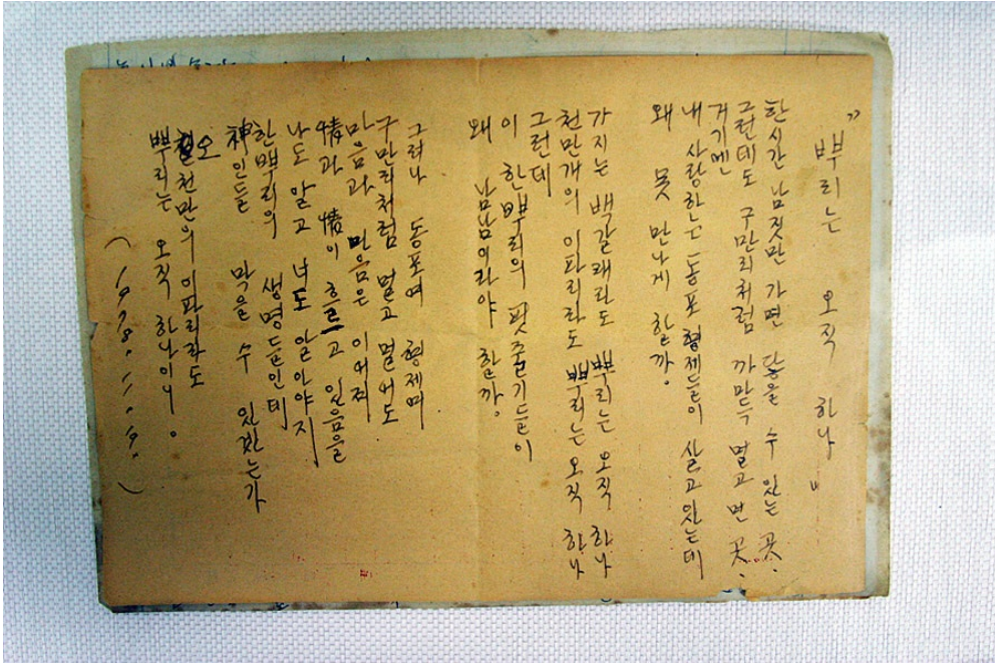 "뿌리는 오직 하나"
한시간 남짓만 가면 닿을 수 있는 곳.
그런데도 구만리처럼 까마득 멀고 먼 곳.
거기엔
내 사랑하는 동포 형제들이 살고 있는데
왜 못 만나게 할까.
가지는 백갈래라도 뿌리는 오직 하나
천만개의 이파리라도 뿌리는 오직 하나
그런데
이 한뿌리의 핏줄기들이
왜 남남이라야 할까.
그러나 동포여 형제여
구만리처럼 멀고 멀어도
마음과 믿음은 이어져
情과 情이 흐르고 있음을
나도 알고 너도 알아야지
한뿌리의 생명들인데
神인들 막을 수 있겠는가
오천만의 이파리라도
뿌리는 오직 하나이니.